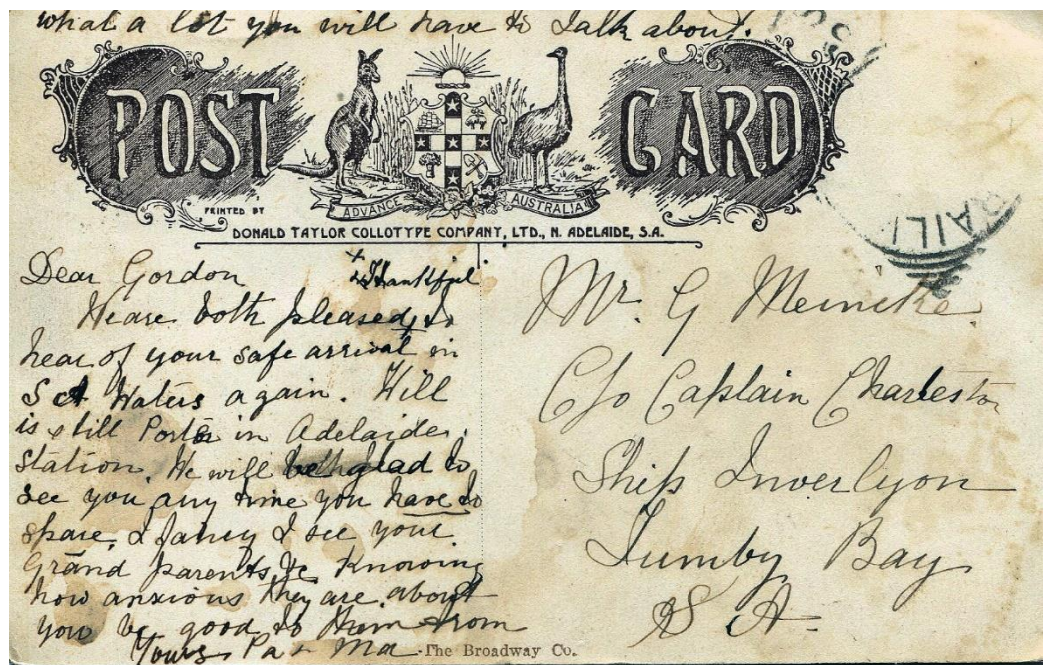 what a lot you will have to talk about.
POST CARD
ADVANCE AUSTRALIA
PRINTED BY
DONALD TAYLOR COLLOTYPE COMPANY, LTD., N. ADELAIDE, S.A.
Dear Gordon
+ Thankful
We are both pleased to
hear of your safe arrival in
S A Waters again. Will
is still Porter in Adelaide
Station. He will be glad to
see you any time you have to
spare, I fancy I see your
Grand parents Knowing
how anxious they are about
you be good to them from
Yours Pa + Ma
Mr. G Meincke
C/o Captain Charleston
Ship Inverlyon
Tumby Bay
S A.
The Broadway Co.